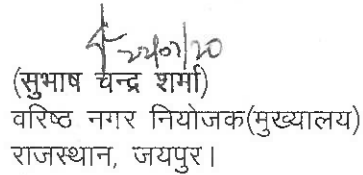 22/07/20
(सुभाष चन्द्र शर्मा)
वरिष्ठ नगर नियोजक(मुख्यालय)
राजस्थान, जयपुर।